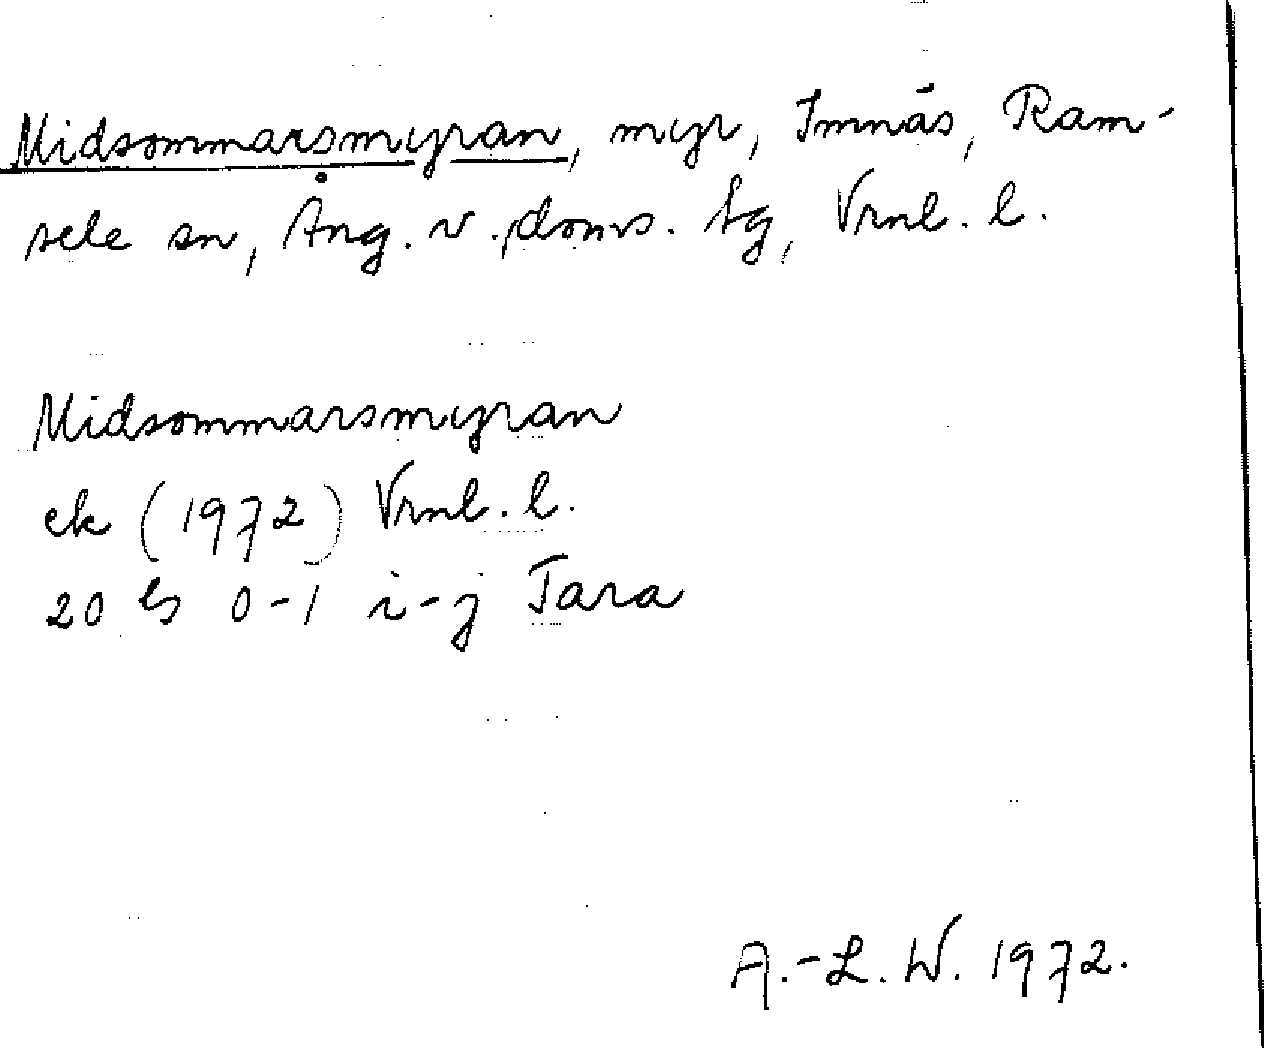 Midsommarsmyran, myr, Imnäs, Ram-
sele sn, Ång. v. doms. tg, Vrnl. l.
Midsommarsmyran
ek (1972) Vrnl. l.
20 0-1 i-j Tara
A.-L. W. 1972.